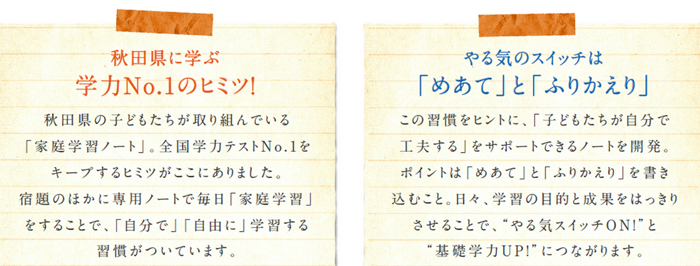 秋田県に学ぶ
学力No.1のヒミツ!
秋田県の子どもたちが取り組んでいる
「家庭学習ノート」。全国学力テストNo.1を
キープするヒミツがここにありました。
宿題のほかに専用ノートで毎日「家庭学習」
をすることで、「自分で」「自由に」学習する
習慣がついています。
やる気のスイッチは
「めあて」と「ふりかえり」
この習慣をヒントに、「子どもたちが自分で
工夫する」をサポートできるノートを開発。
ポイントは「めあて」と「ふりかえり」を書き
込むこと。日々、学習の目的と成果をはっきり
させることで、“やる気スイッチON!”と
“基礎学力UP!”につながります。